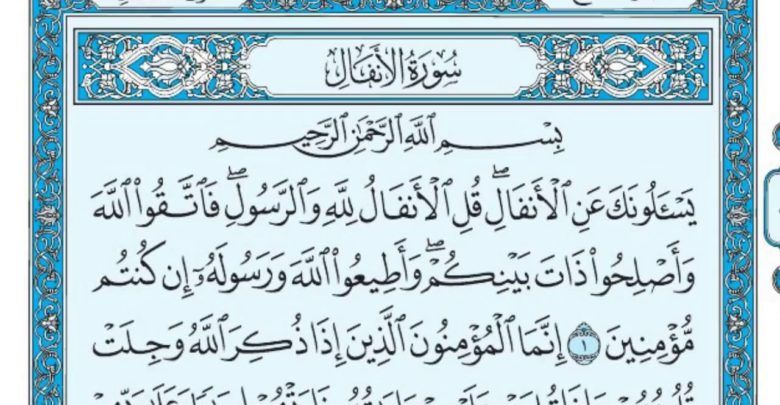 سُورَةُ الأَنفَالِ
بِسْمِ اللَّهِ الرَّحْمَٰنِ الرَّحِيمِ
يَسْـَٔلُونَكَ عَنِ ٱلْأَنفَالِۖ قُلِ ٱلْأَنفَالُ لِلَّهِ وَٱلرَّسُولِۖ فَٱتَّقُوا۟ ٱللَّهَ
وَأَصْلِحُوا۟ ذَاتَ بَيْنِكُمْۖ وَأَطِيعُوا۟ ٱللَّهَ وَرَسُولَهُۥٓ إِن كُنتُم
مُّؤْمِنِينَ ١ إِنَّمَا ٱلْمُؤْمِنُونَ ٱلَّذِينَ إِذَا ذُكِرَ ٱللَّهُ وَجِلَتْ